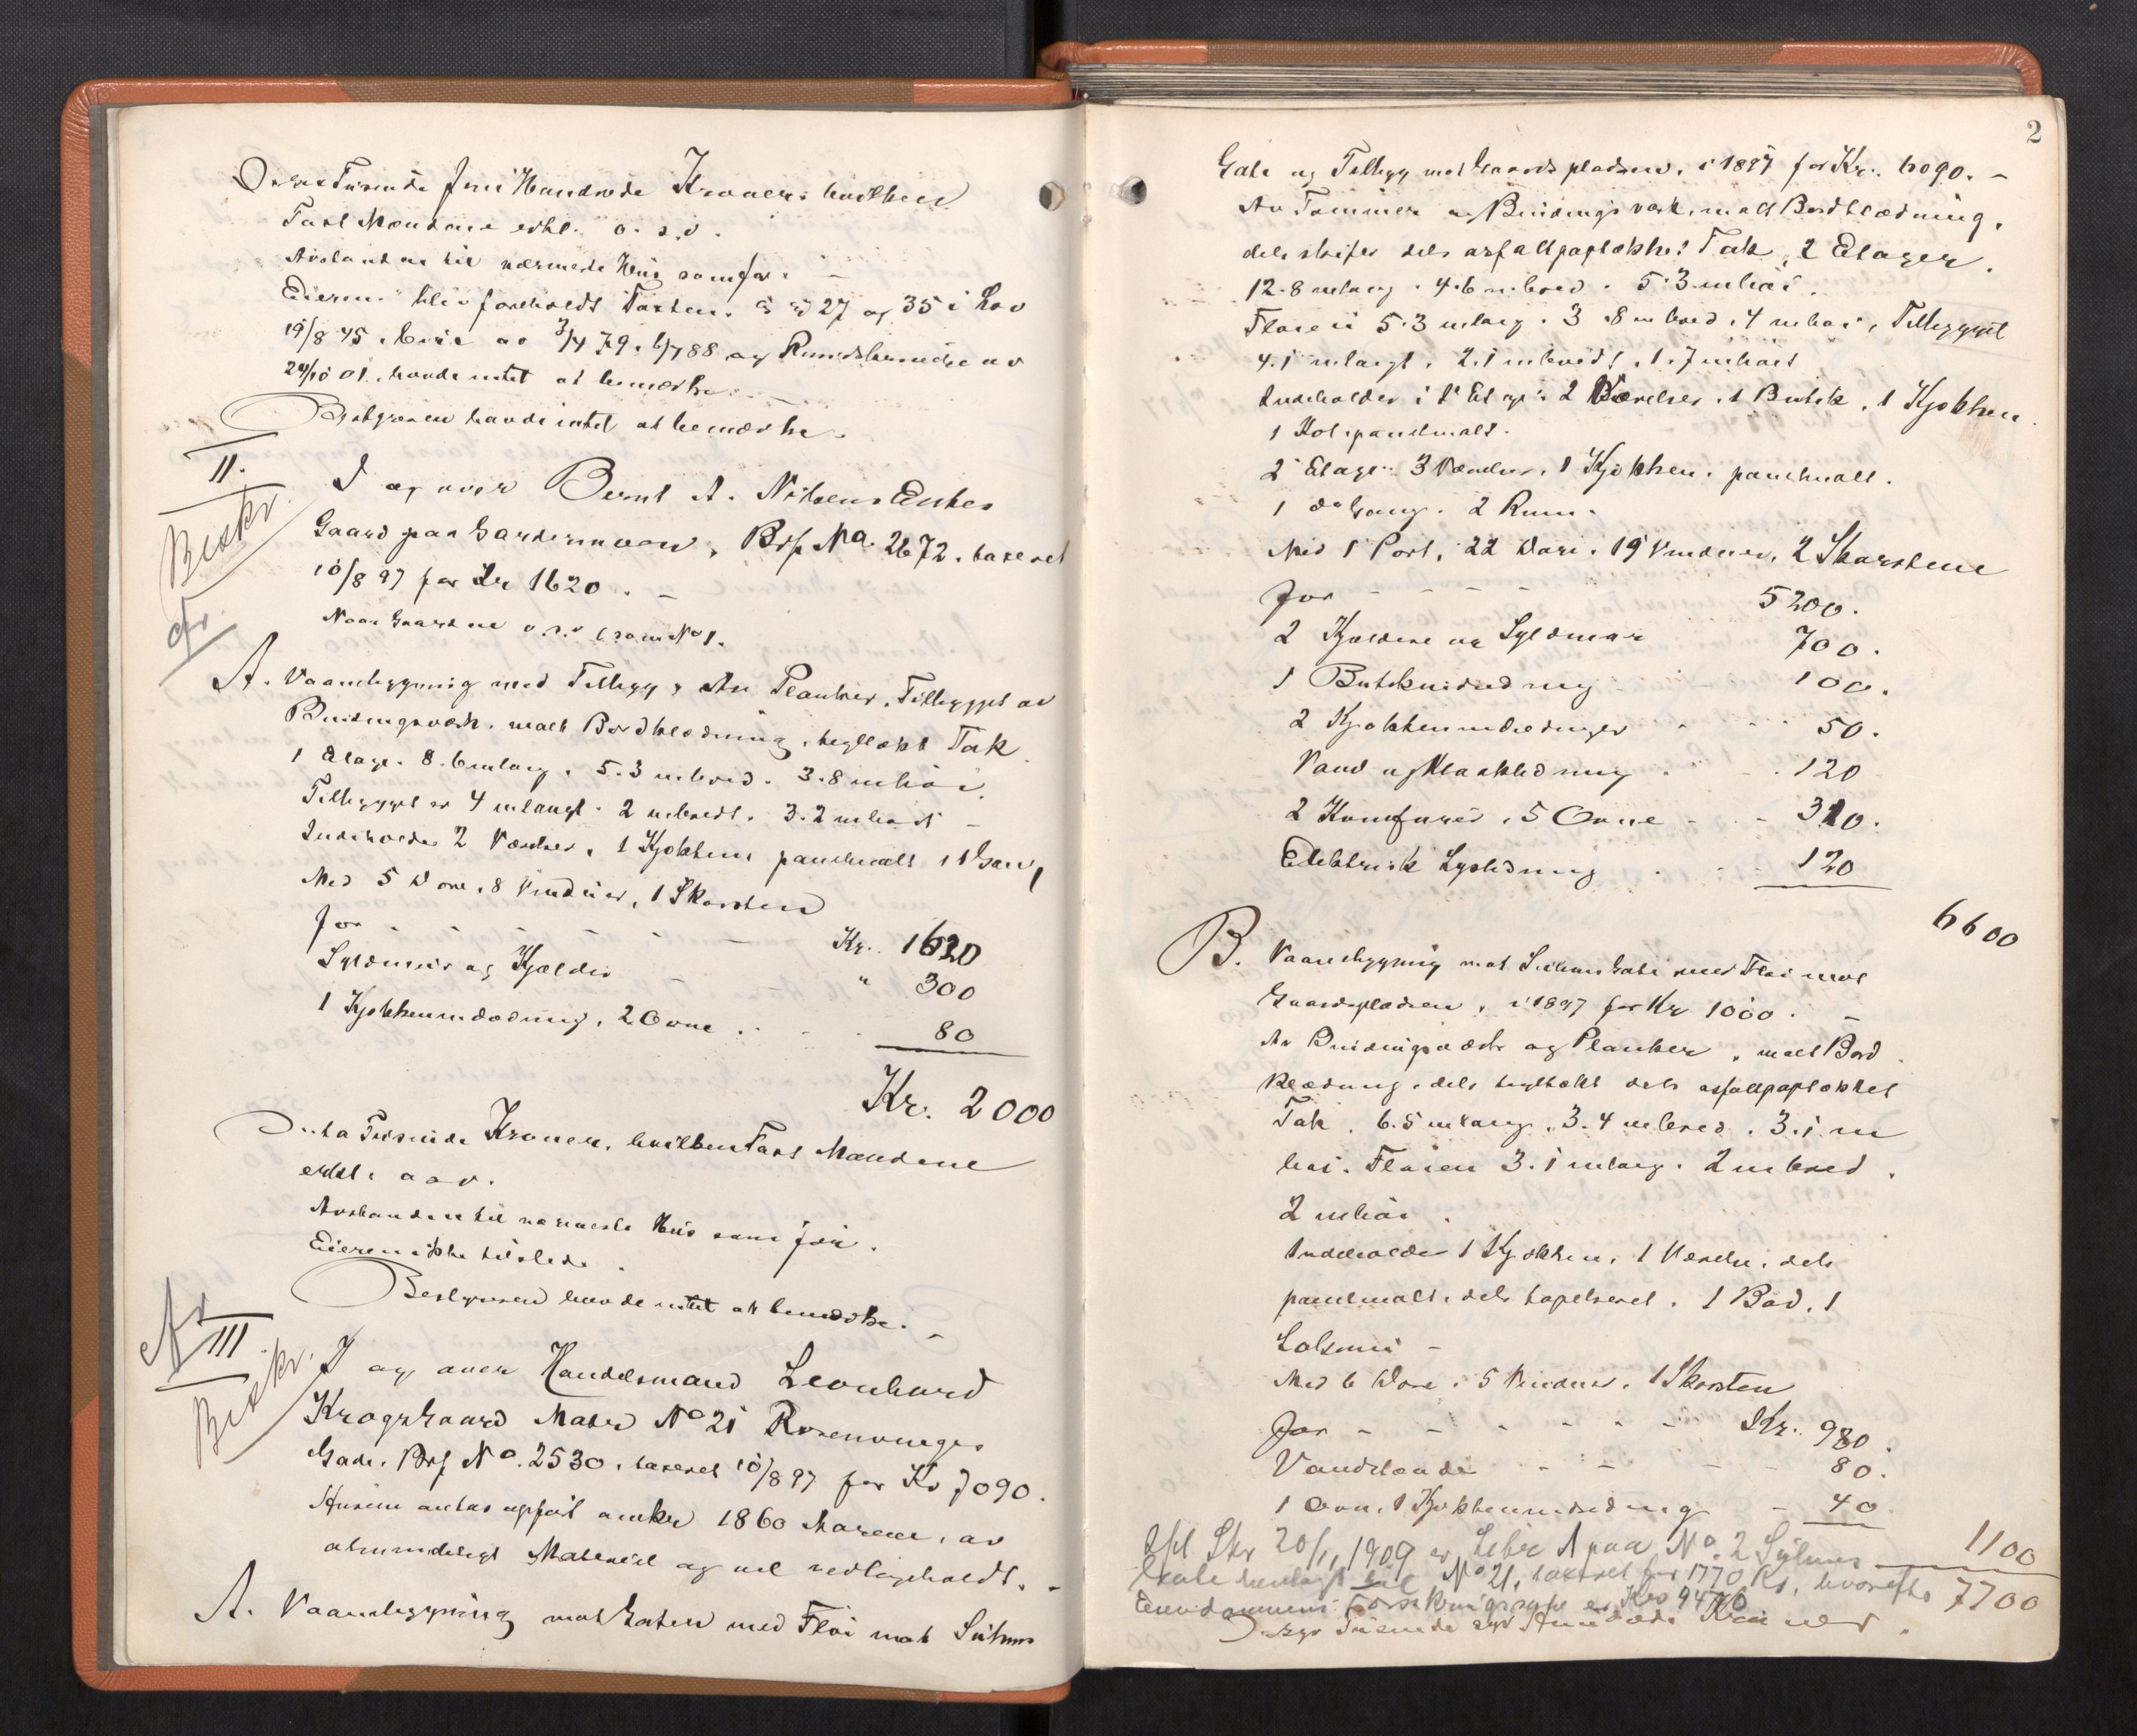 Tusinde fem Hundrede Kroner. hvilken
Taxt Mændene erkl. o. s. v.
Avstanden til nærmeste Hus som før. —
Eieren blev foreholdt Taxten. §§ 27 og 35 i Lov
19/8 45. Love av 3/4 79. 6/7 88 og Rundskrivelse av
24/10 01. havde intet at bemærke. —
Bestyreren havde intet at bemærke.
II.
Beskr.
I og over Bernt A. Nilsens Enkes
Gaard paa Gardermoen, Brf No. 2672. taxeret
10/8 97 for Kr 1620. —
Naar Gaardene o.s.v. som No 1.
A. Vaanebygning med Tilbygg. Av Planker, Tilbygget av
Bindingsværk. malt Bordklædning. tegltækt Tak.
1 Etage. 8.6 m lang. 5.3 m bred. 3.8 m høi.
Tilbygget er 4 m langt. 2 m bredt. 3.2 m høit —
Indeholder 2 Værelser, 1 Kjøkken panelmalt. 1 Gang
Med 5 Døre. 8 Vinduer, 1 Skorsten
for - - - - Kr. 1620
Syldmur og Kjælder - " 300
1 Kjøkkenindredning, 2 Ovne . . . 80
Kr. 2000
To Tusinde Kroner, hvilken Taxt Mændene
erkl. o s v.
Avstanden til nærmeste Hus som før.
Eieren ikke tilstede.
Bestyreren havde intet at bemærke. —
III
Beskr.
I og over Handelsmand Leonhard
Krogs Gaard Matr No 21 Rosenborgs
Gade. Brf No. 2530. taxeret 10/8 97 for Kr 7090.
Husene antas opført omkr 1860 Aarene, av
almindeligt Materiel og vel vedligeholdt. -
A. Vaanebygning mot Gaten med Fløi mot Suhms
2
Gate og Tilbygg mot Gaardspladsen. i 1897 for Kr. 6090. —
Av Tømmer og Bindingsværk. malt Bordklædning,
dels skifer dels asfaltpaptækket Tak, 2 Etager.
12.8 m lang. 4.6 m bred. 5.3 m høi.
Fløien 5.3 m lang. 3.8 m bred. 4 m høi, Tilbygget
4.1 m langt. 2.1 m bredt. 1.7 m høit
Indeholder i 1' Etage: 2 Værelser. 1 Butik. 1 Kjøkken.
1 panelmalt.
2' Etage: 3 Værelser, 1 Kjøkken. panelmalt.
1 do Gang. 2 Rum.
Med 1 Port, 22 Døre. 19 Vinduer, 2 Skorstene
for - - - - 5200.
2 Kjældere og Syldmur 700.
1 Butikindredning 100.
2 Kjøkkenindredninger - - - 50.
Vand og Kloakledning . - . 120
2 Komfurer. 5 Ovne - - 310.
Elektrisk Lysledning . - - 120
6600
B. Vaanebygning mot Suhms Gate med Fløi mot
Gaardspladsen, i 1897 for Kr 1000. —
Av Bindingsværk og Planker, malt Bord
klædning. dels tegltækt dels asfaltpaptækket
Tak. 6.5 m lang. 3.4 m bred. 3.1 m
høi. Fløien 3.1 m lang. 2 m bred.
2 m høi.
Indeholder 1 Kjøkken, 1 Værelse, dels
panelmalt. dels tapetseret. 1 Bod. 1
Lokum —
Med 6 Døre. 5 Vinduer. 1 Skorsten
for - - - - - Kr. 980.
Vandledn - - - 80.
1 Ovn. 1 Kjøkkenindredning - 40
1100
Ifl Skr 20/1, 1909 er Litr A paa No. 2 Suhms
Gate henlagt til No 21, taxeret for 1770 Kr, hvorefter
7700
Eiendommens Forsikringssum er Kr 9470
Syv Tusinde syv Hundrede Kroner.